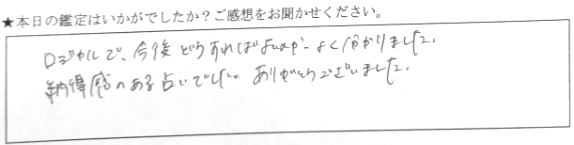 ★本日の鑑定はいかがでしたか?ご感想をお聞かせください。
ロジカルで、今後どうすればよいか よく分かりました。
納得感のある占いでした。ありがとうございました。